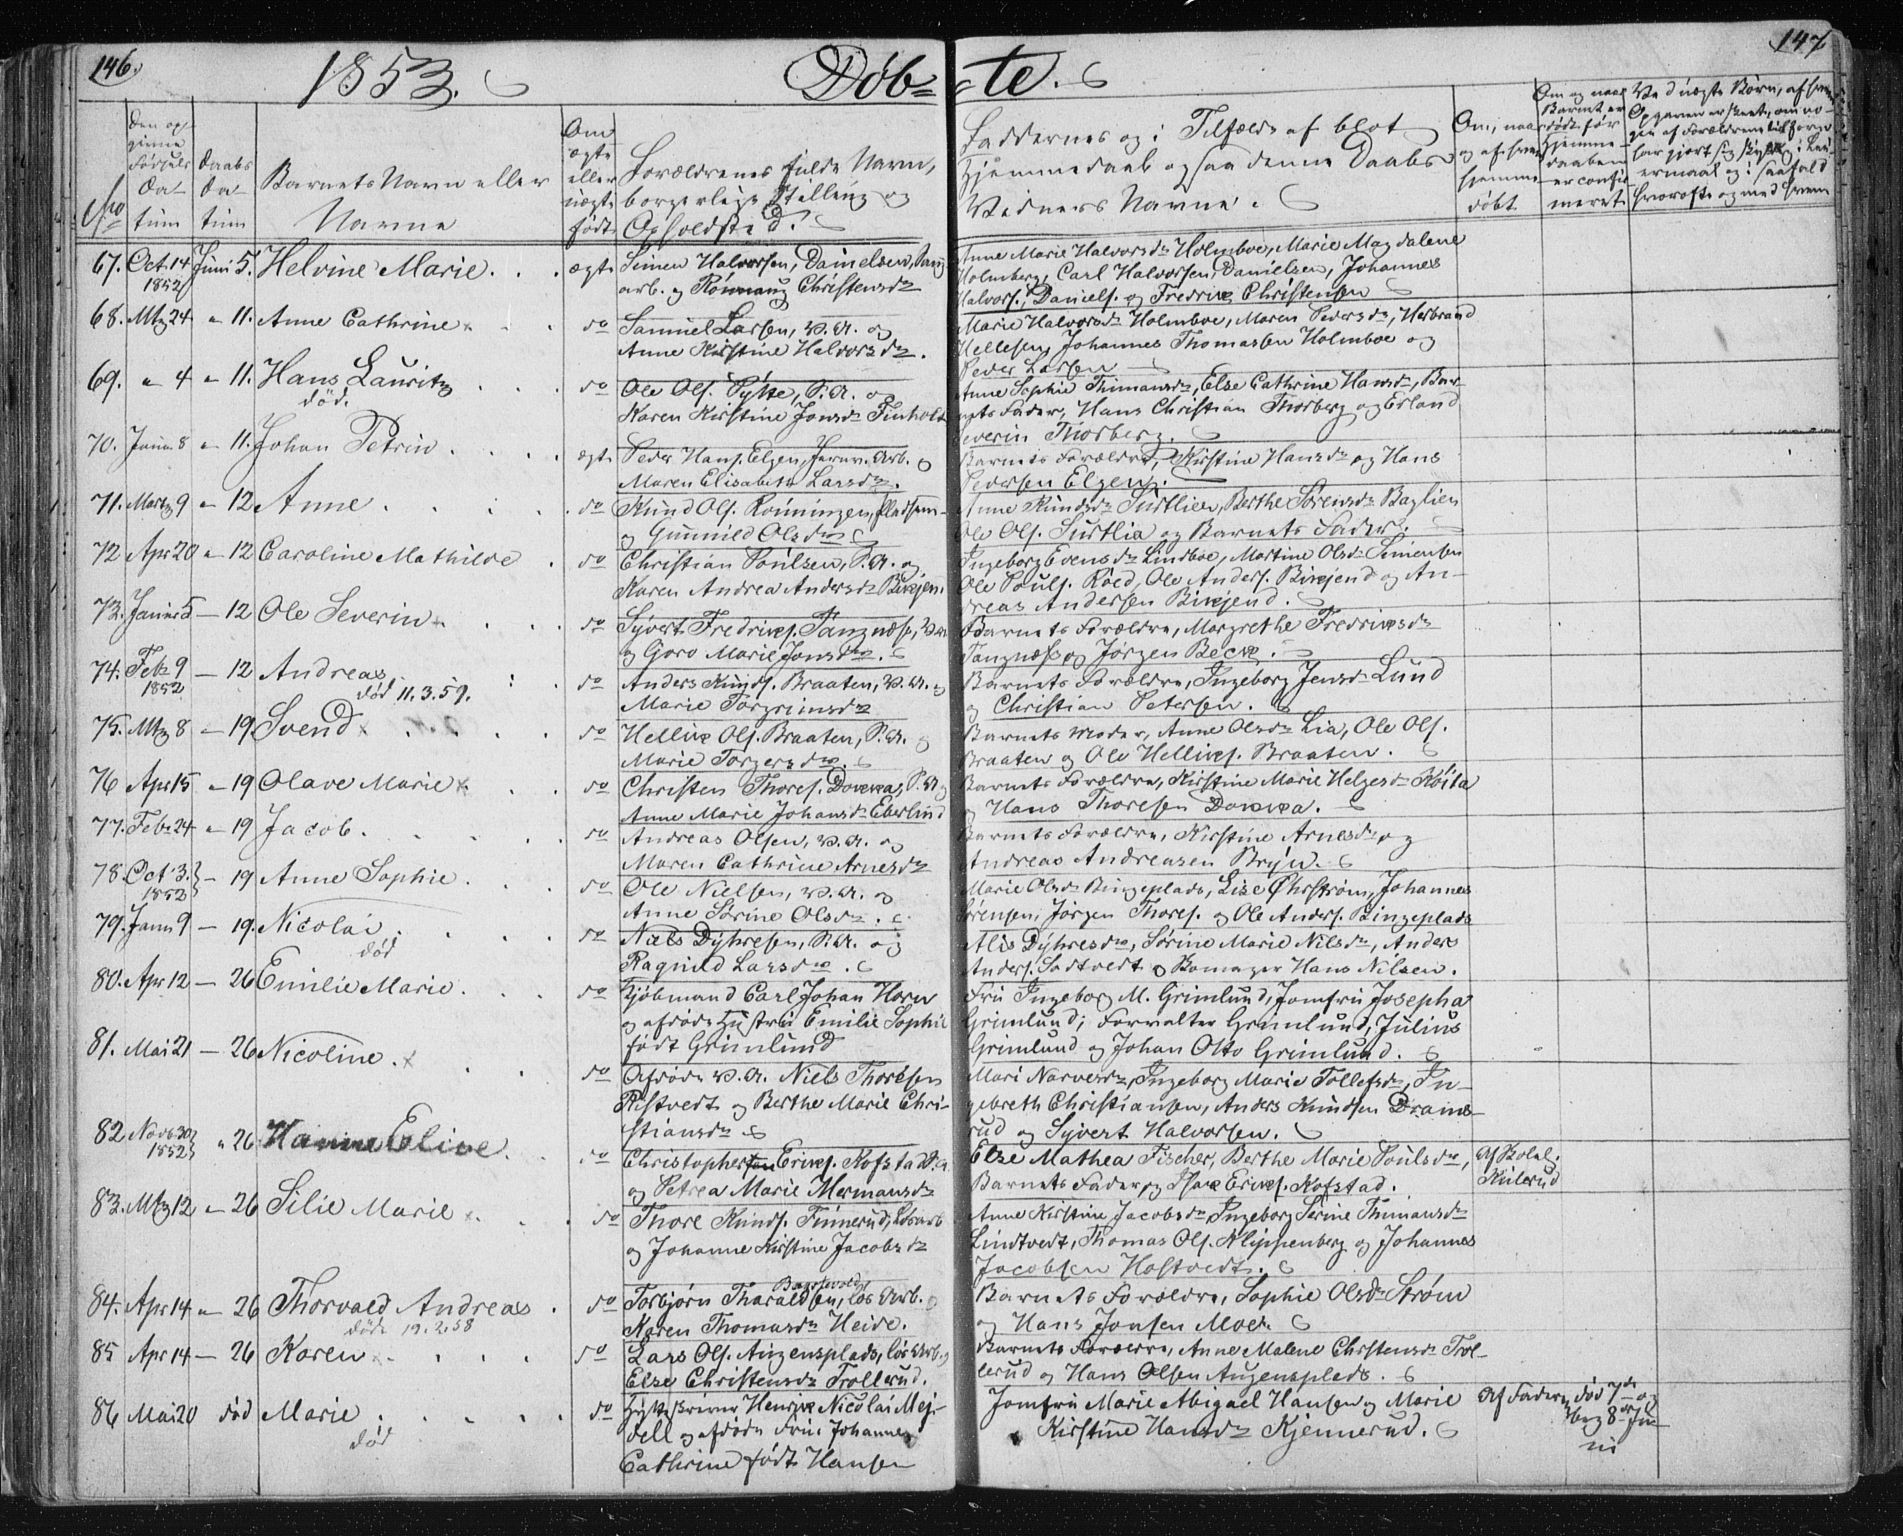 146.
1853.
Døb=
=te.
147
No
Den opgivne Fødsels Datum
Daabs Datum
Barnets Navn eller Navne
Om ægte eller uægte født
Forældrenes fulde Navn, borgerlige Stilling og Opholdsted.
Faddernes og i Tilfælde af blot Hjemmedaab ogsaa denne Daabs Vidners Navne.
Om, naar og af hvem hjemmedøbt
Om og naar Barnet er død før Hjemmedaaben er confirmeret
67. Oct. 14 1852 Juni 5. Helvine Marie. ægte
Simen Halvorsen, Danielsen,
arb. og Christensdr
Anne Marie Halvorsdr Holmboe, Marie Magdalene
Holmberg, Carl Halvorsen, Danielsen, Johannes
Halvors., Daniels. og Fredrik Christensen
68. Mtz 24 " 11. Anne Cathrine do
Samuel Larsen, og
Anne Kirstine Halvorsdr.
Marie Halvorsdr Holmboe, Maren Pedersdr, Herbrand
Hellesen, Johannes Thomasen Holmboe og
Peder Larsen
69. " 4 " 11. Hans Lauritz do
død.
Ole Ols. Sytte, P.A. og
Karen Kirstine Jonsdr Finholt
Anne Sophie Thimansdr, Else Cathrine Hansdr, Bar-
nets Fader, Hans Christian Thorberg og Erland
Severin Thorberg.
70. Janu 8 " 11. Johan Petrin ægte
Peder Hans. Elgen, Jernv. Arb. og
Maren Elisabeth Larsdr.
Barnets Forældre, Kirstine Hansdr og Hans
Pedersen Elgen.
71. Marts 9 " 12 Anne do
Knud Ols. Rønningen, Pladsm-
og Gunnild Olsdr
Anne Knudsdr Surtlien, Berthe Sørensdr Baglien
Ole Ols. Surtlia og Barnets Fader.
72 Apr 20 " 12 Caroline Mathilde do
Christian Poulsen, P.A. og
Karen Andrea Andersdr
Ingeborg Evensdr Lindboe, Martine Olsdr Simensen
Ole Pouls. Røed, Ole Anders. og An-
dreas Andersen
73. Janu 5 — 12 Ole Severin do
Syvert Fredriks. Tangnæs,
og Goro Marie Jonsdr.
Barnets Forældre, Margrethe Fredriksdr
Tangnæs og Jørgen Beck.
74. Feb 9 1852 — 12 Andreas do
død 11.3.59.
Anders Knuds. Braaten, og
Marie Torgrimsdr
Barnets Forældre, Ingeborg Jensdr Lund
og Christian Petersen.
75. Mtz 8 — 19. Svend do
Hellik Ols. Braaten, P.A. og
Marie Torgersdr.
Barnets Moder, Anne Olsdr Lia, Ole Ols.
Braaten og Ole Helliks. Braaten.
76 Apr 15 " 19 Olave Marie do
Christen Thores. Dokka, P.A. og
Anne Marie Johansdr Eberlund
Barnets Forældre, Kirstine Marie Helgesdr
og Hans Thoresen Dokka.
77. Feb 24 " 19 Jacob. do
Andreas Olsen, og
Maren Cathrine Arnesdr
Barnets Forældre, Kirstine Arnesdr og
Andreas Andreasen Bryn.
78. Oct 3. 1852 — 19 Anne Sophie. do
Ole Nielsen, og
Anne Sørine Olsdr.
Marie Olsdr Bingeplads, Lise Øhrstrøm, Johannes
Sørensen, Jørgen Thores. og Ole Anders. Bingeplads
79. Janu 9 — 19. Nicolai. do
død
Niels Dyhresen, P.A. og
Ragnild Larsdr.
Alis Dyhresdr, Sørine Marie Nilsdr, Anders
Anders. Sadtvedt og Hans Nilsen.
80. Apr 12 — 26 Emilie Marie. do
Kjøbmand Carl Johan Horn
og afdøde Hustru Emilie Sophie
født Grimlund
Fru Ingeborg M. Grimlund, Jomfru Josepha
Grimlund; Forvalter Grimlund, Julius
Grimlund og Johan Otto Grimlund.
81. Mai 21 — 26 Nicoline. do
Afdøde Niels Thoresen
Ristvedt og Berthe Marie Chri-
stiansdr
Mari Narvesdr, Ingeborg Marie Tollefsdr, In-
gebreth Christiansen, Anders Knudsen Drams-
rud og Syvert Halvorsen.
82 Novb 30 1852 " 26 Hanna Eline. do
Christopher Eriks. Kofstad P.A.
og Petrea Marie Hermansdr
Else Mathea Fischer, Berthe Marie Poulsdr,
Barnets Fader og Isak Eriks. Kofstad.
Af Kulerud
83. Mtz 12 " 26 Silie Marie do
Thore Knuds. Finnerud, Løsarb
og Johanne Kirstine Jacobsdr
Anne Kirstine Jacobsdr, Ingeborg Serine Thimansdr
Lindtvedt, Thomas Ols. Klippenberg og Johannes
Jacobsen Hostvedt.
84. Apr 14 " 26 Thorvald Andreas. do
døde 19.2.58
Torbjørn Tharaldsen, løs Arb. og
Karen Thomasdr Heide.
Barnets Forældre, Sophie Olsdr Strøm
og Hans Jonsen Moe.
85 Apr 14 — 26 Karen do
Lars Ols. Augensplads, løs Arb. og
Else Christensdr Trollerud.
Barnets Forældre, Anne Malene Christensdr Trol-
lerud og Hans Olsen Augensplads.
86 Mai 20 død Marie do
død
Hytteskriver Henrik Nicolai Mej-
dell og afdøde Fru: Johanne
Cathrine født Hansen
Jomfru Marie Abigael Hansen og Marie
Kirstine Hansdr Kjennerud.
Af Faderen
død 7de og
begr 8de Ju-
ni